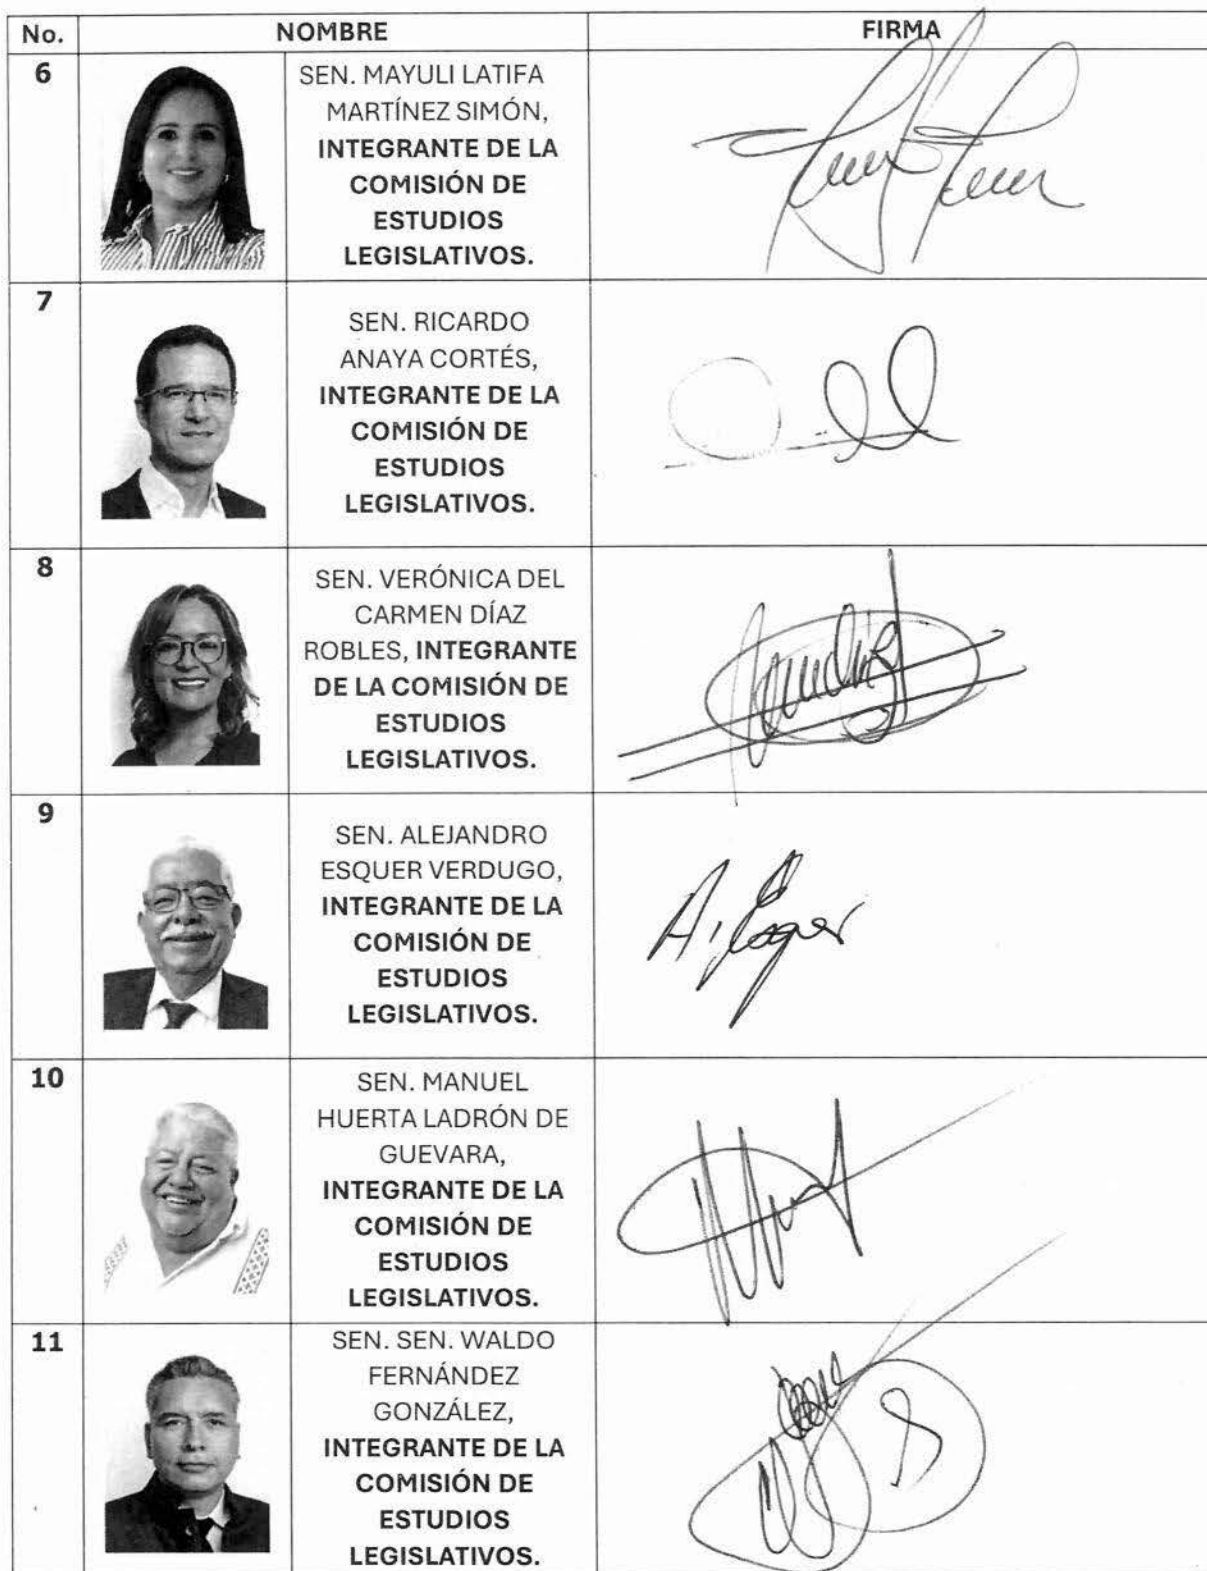 No. NOMBRE FIRMA
6
SEN. MAYULI LATIFA
MARTÍNEZ SIMÓN,
INTEGRANTE DE LA
COMISIÓN DE
ESTUDIOS
LEGISLATIVOS.
7
SEN. RICARDO
ANAYA CORTÉS,
INTEGRANTE DE LA
COMISIÓN DE
ESTUDIOS
LEGISLATIVOS.
8
SEN. VERÓNICA DEL
CARMEN DÍAZ
ROBLES, INTEGRANTE
DE LA COMISIÓN DE
ESTUDIOS
LEGISLATIVOS.
9
SEN. ALEJANDRO
ESQUER VERDUGO,
INTEGRANTE DE LA
COMISIÓN DE
ESTUDIOS
LEGISLATIVOS.
10
SEN. MANUEL
HUERTA LADRÓN DE
GUEVARA,
INTEGRANTE DE LA
COMISIÓN DE
ESTUDIOS
LEGISLATIVOS.
11
SEN. SEN. WALDO
FERNÁNDEZ
GONZÁLEZ,
INTEGRANTE DE LA
COMISIÓN DE
ESTUDIOS
LEGISLATIVOS.